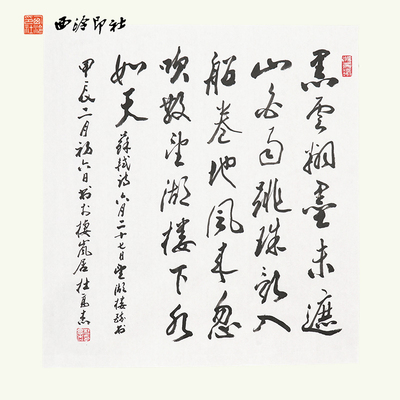 西泠印社
黑雲翻墨未遮
山白雨跳珠乱入
船卷地風来忽
吹散望湖楼下水
如天
蘇軾诗六月二十七日望湖楼醉书
甲辰二月初六日书于棲嵐居杜